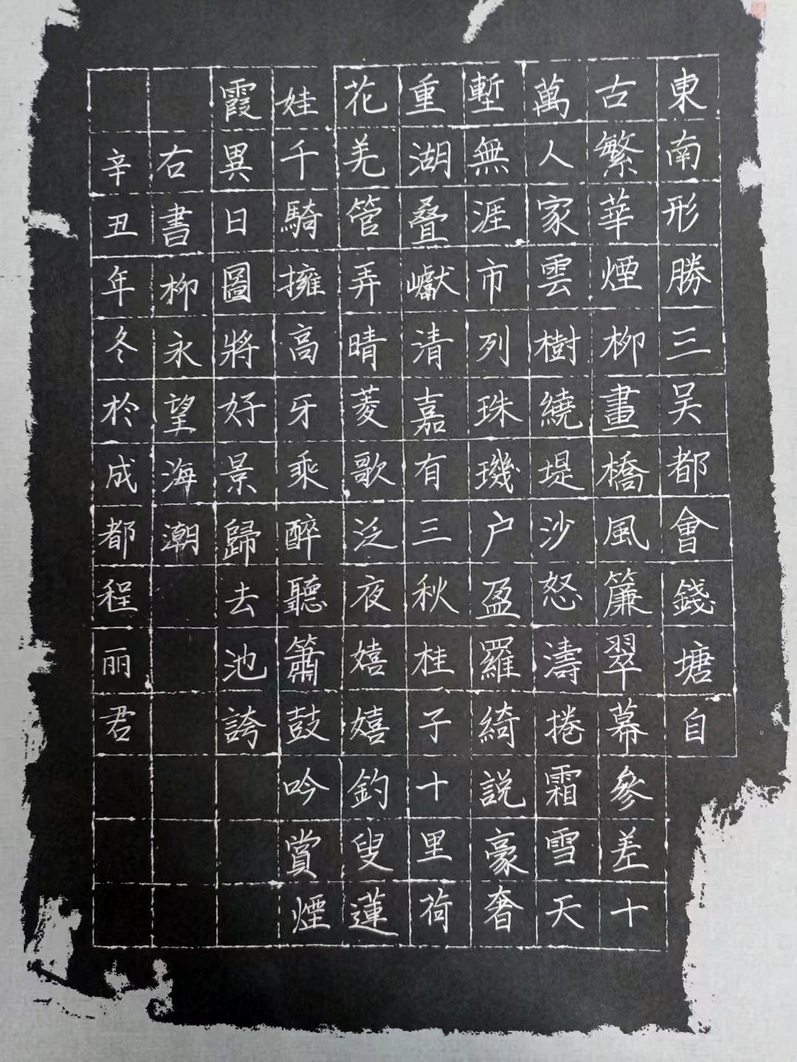 東南形勝三吴都會錢塘自
古繁華煙柳畫橋風簾翠幕參差十
萬人家雲樹繞堤沙怒濤捲霜雪天
塹無涯市列珠璣户盈羅綺説豪奢
重湖叠巘清嘉有三秋桂子十里荷
花羌管弄晴菱歌泛夜嬉嬉釣叟蓮
娃千騎擁高牙乘醉聽簫鼓吟賞煙
霞異日圖將好景歸去池誇
右書柳永望海潮
辛丑年冬於成都程丽君